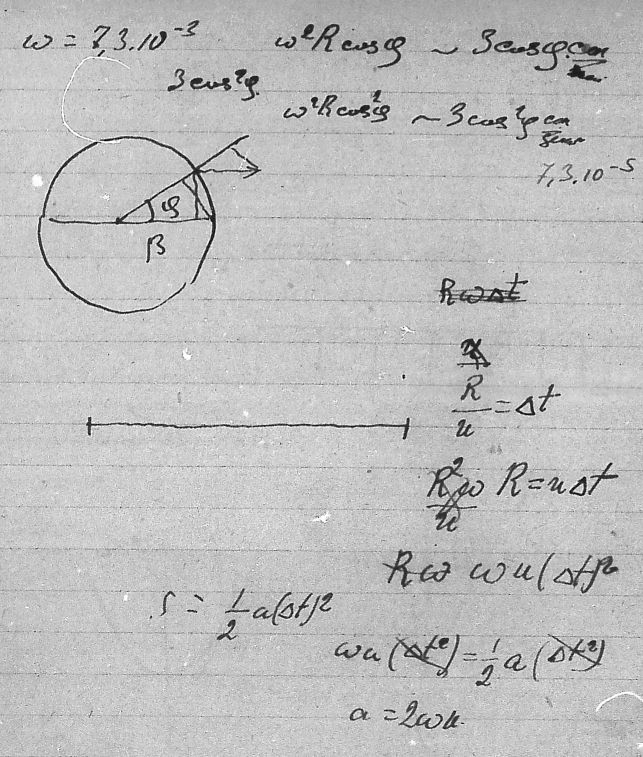 ω = 7,3.10⁻³ ω²R cosφ ~ 3cosφ
3cos²φ
ω²R cos²φ ~ 3cos²φ
7,3.10⁻⁵
φ
β
RωΔt
R/u = Δt
R²ω/u R = uΔt
Rω ωu(Δt)²
s = 1/2 a(Δt)²
ωu(Δt²) = 1/2 a(Δt²)
a = 2ωu.